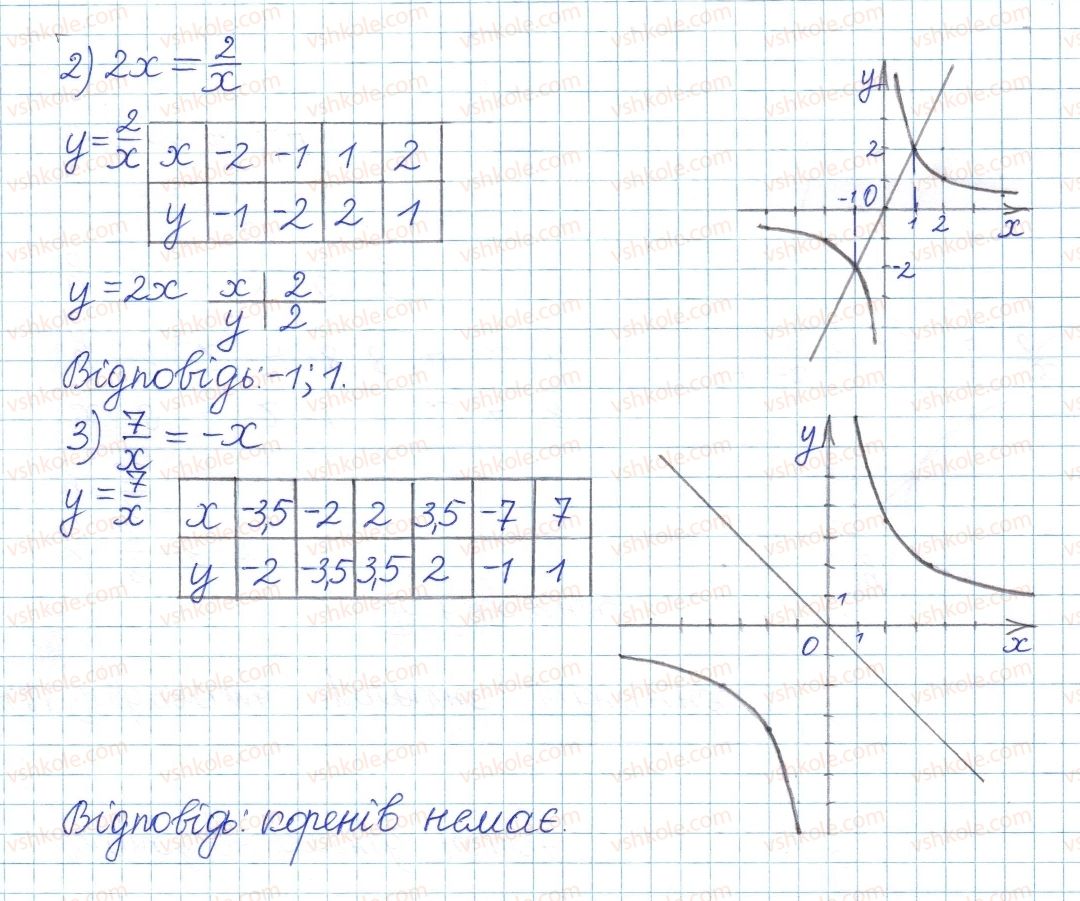 2) 2x = 2/x
y = 2/x
x -2 -1 1 2
y -1 -2 2 1
y = 2x
x 2
y 2
Відповідь: -1; 1.
y
2
-1 0 1 2 x
-2
3) 7/x = -x
y = 7/x
x -3,5 -2 2 3,5 -7 7
y -2 -3,5 3,5 2 -1 1
y
1
0 1 x
Відповідь: коренів немає.
vshkole.com